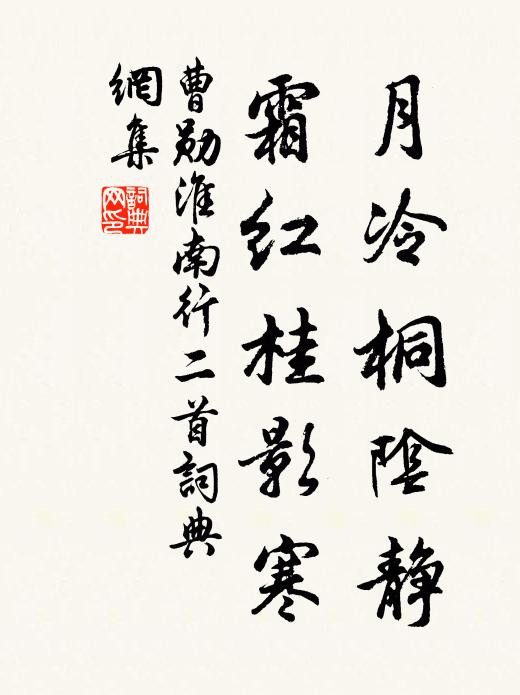 月冷桐陰静
霜红桂影寒
曹勛淮南行二首詞典
網集
詞典网印